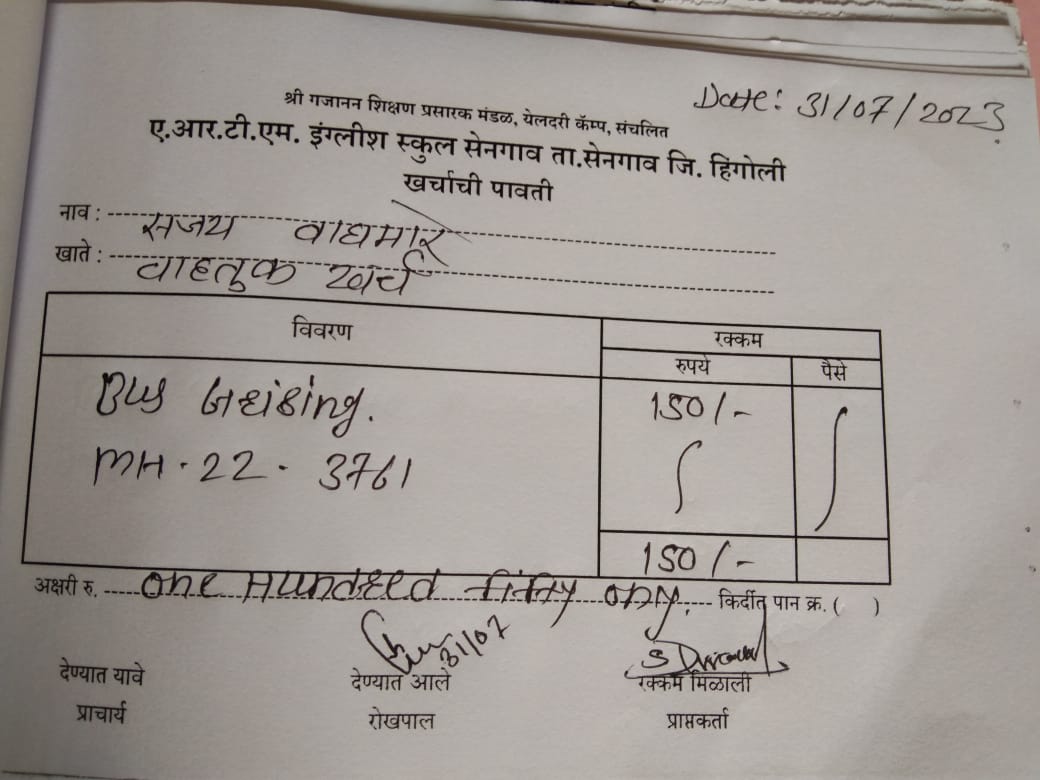 Date: 31/07/2023
श्री गजानन शिक्षण प्रसारक मंडळ, येलदरी कॅम्प, संचलित
ए.आर.टी.एम. इंग्लीश स्कुल सेनगाव ता.सेनगाव जि. हिंगोली
खर्चाची पावती
नाव : सजय वाघमारे
खाते : वाहतुक खर्च
विवरण रक्कम
रुपये पैसे
Bus 150/-
MH.22.3761
150/-
अक्षरी रु. One Hundred only. किर्दीत पान क्र. ( )
31/07
देण्यात यावे देण्यात आले रक्कम मिळाली
प्राचार्य रोखपाल प्राप्तकर्ता